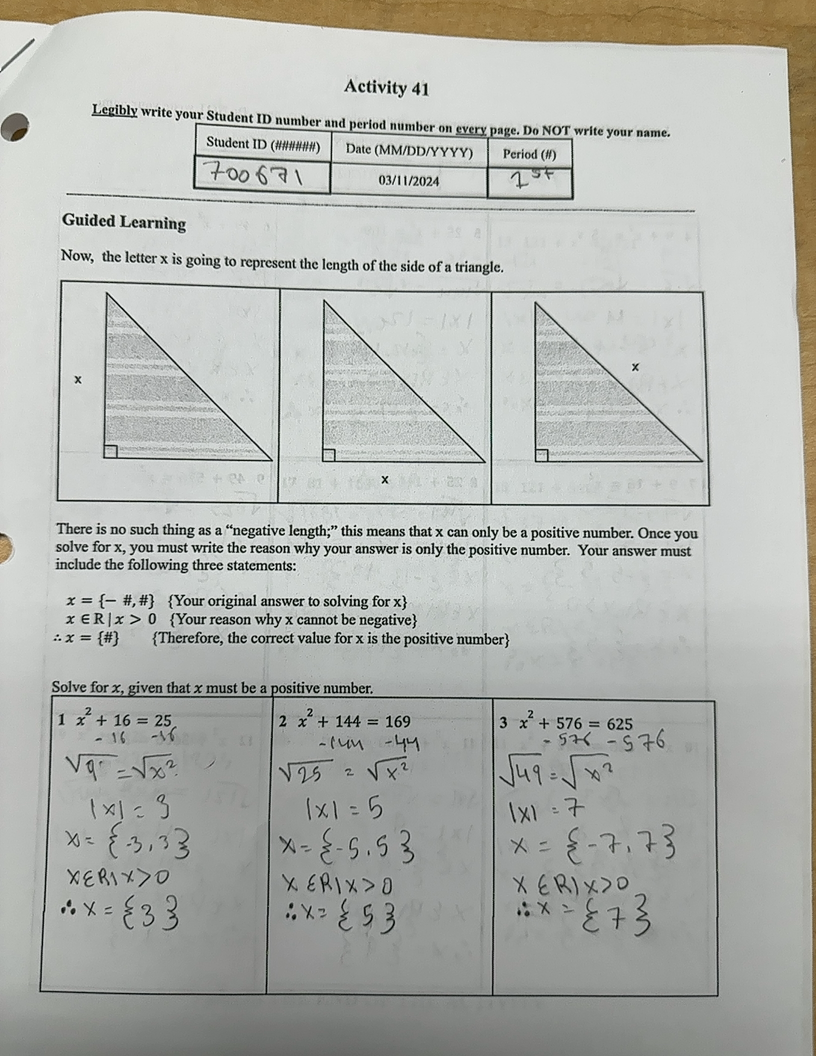 Activity 41
Legibly write your Student ID number and period number on every page. Do NOT write your name.
Student ID (######) Date (MM/DD/YYYY) Period (#)
700671 03/11/2024 1st
Guided Learning
Now, the letter x is going to represent the length of the side of a triangle.
x
x
x
There is no such thing as a “negative length;” this means that x can only be a positive number. Once you
solve for x, you must write the reason why your answer is only the positive number. Your answer must
include the following three statements:
x = {− #, #} {Your original answer to solving for x}
x ∈ R | x > 0 {Your reason why x cannot be negative}
∴ x = {#} {Therefore, the correct value for x is the positive number}
Solve for x, given that x must be a positive number.
1 x² + 16 = 25
-16 -16
√9 = √x²
|x| = 3
x = {-3, 3}
x ∈ R | x > 0
∴ x = {3}
2 x² + 144 = 169
-144 -44
√25 = √x²
|x| = 5
x = {-5, 5}
x ∈ R | x > 0
∴ x = {5}
3 x² + 576 = 625
-576 -576
√49 = √x²
|x| = 7
x = {-7, 7}
x ∈ R | x > 0
∴ x = {7}